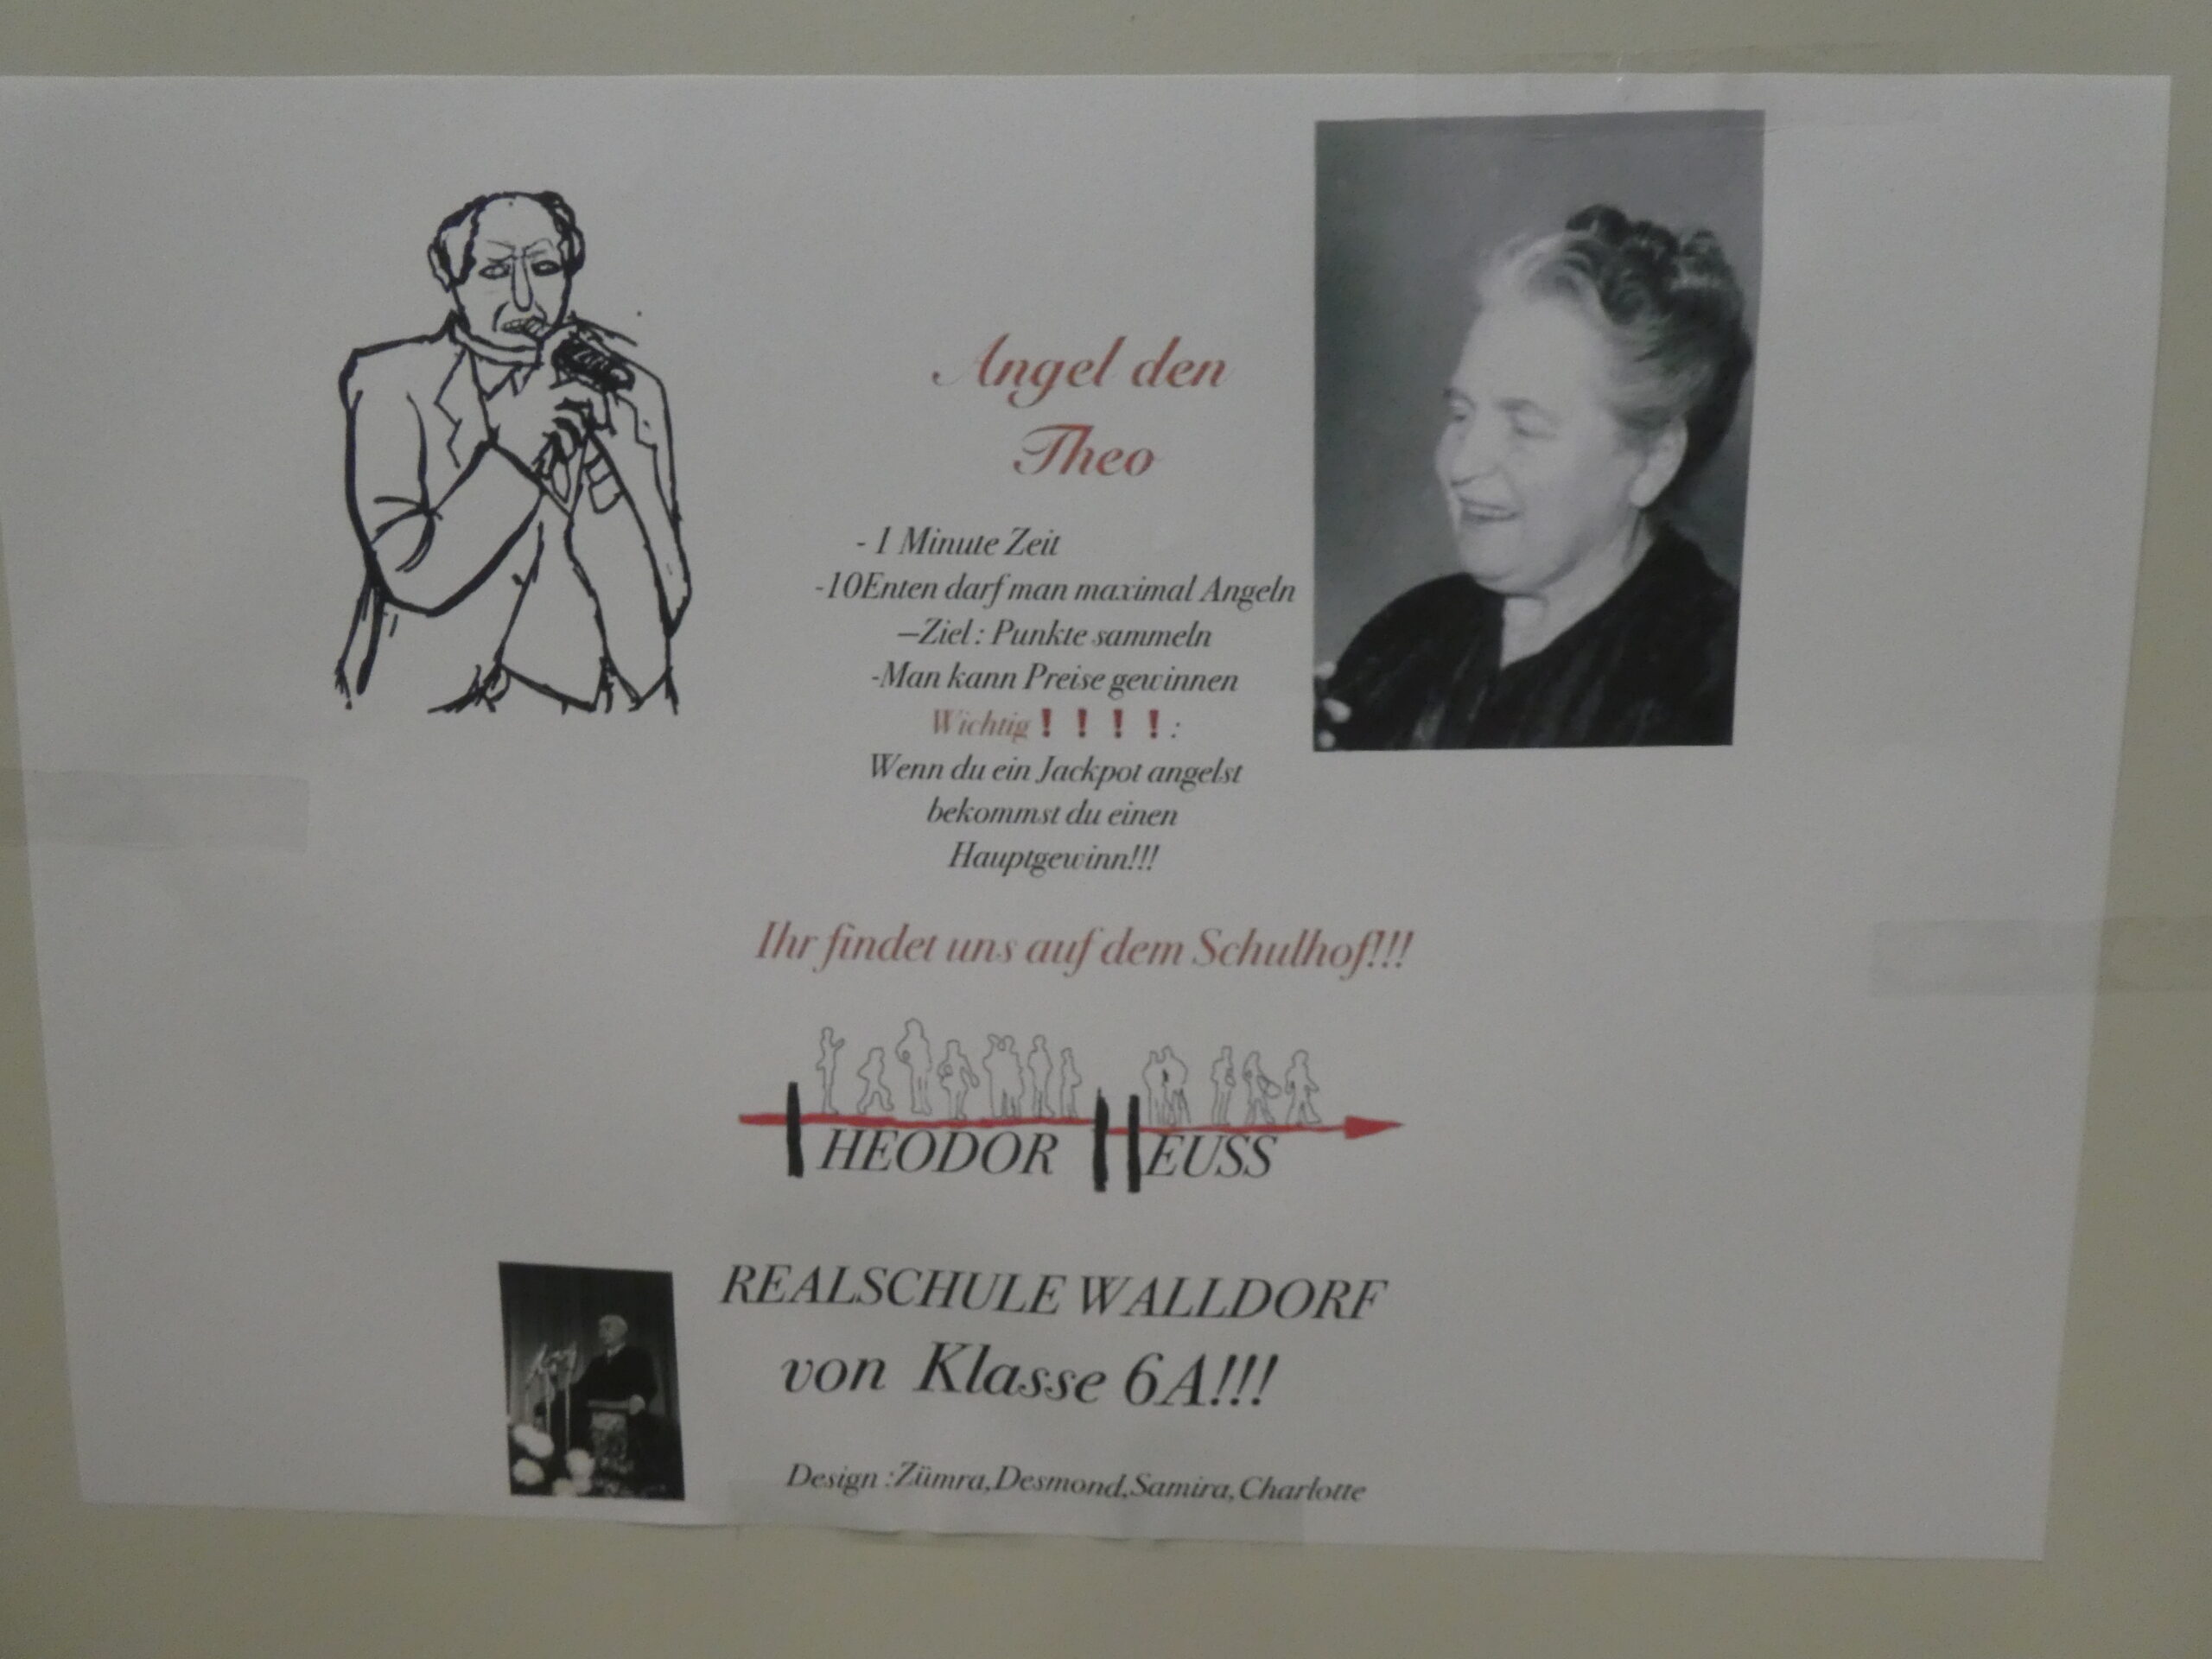 Angel den
Theo
- 1 Minute Zeit
-10Enten darf man maximal Angeln
–Ziel : Punkte sammeln
-Man kann Preise gewinnen
Wichtig❗❗❗❗:
Wenn du ein Jackpot angelst
bekommst du einen
Hauptgewinn!!!
Ihr findet uns auf dem Schulhof!!!
THEODOR HEUSS
REALSCHULE WALLDORF
von Klasse 6A!!!
Design :Zümra,Desmond,Samira,Charlotte